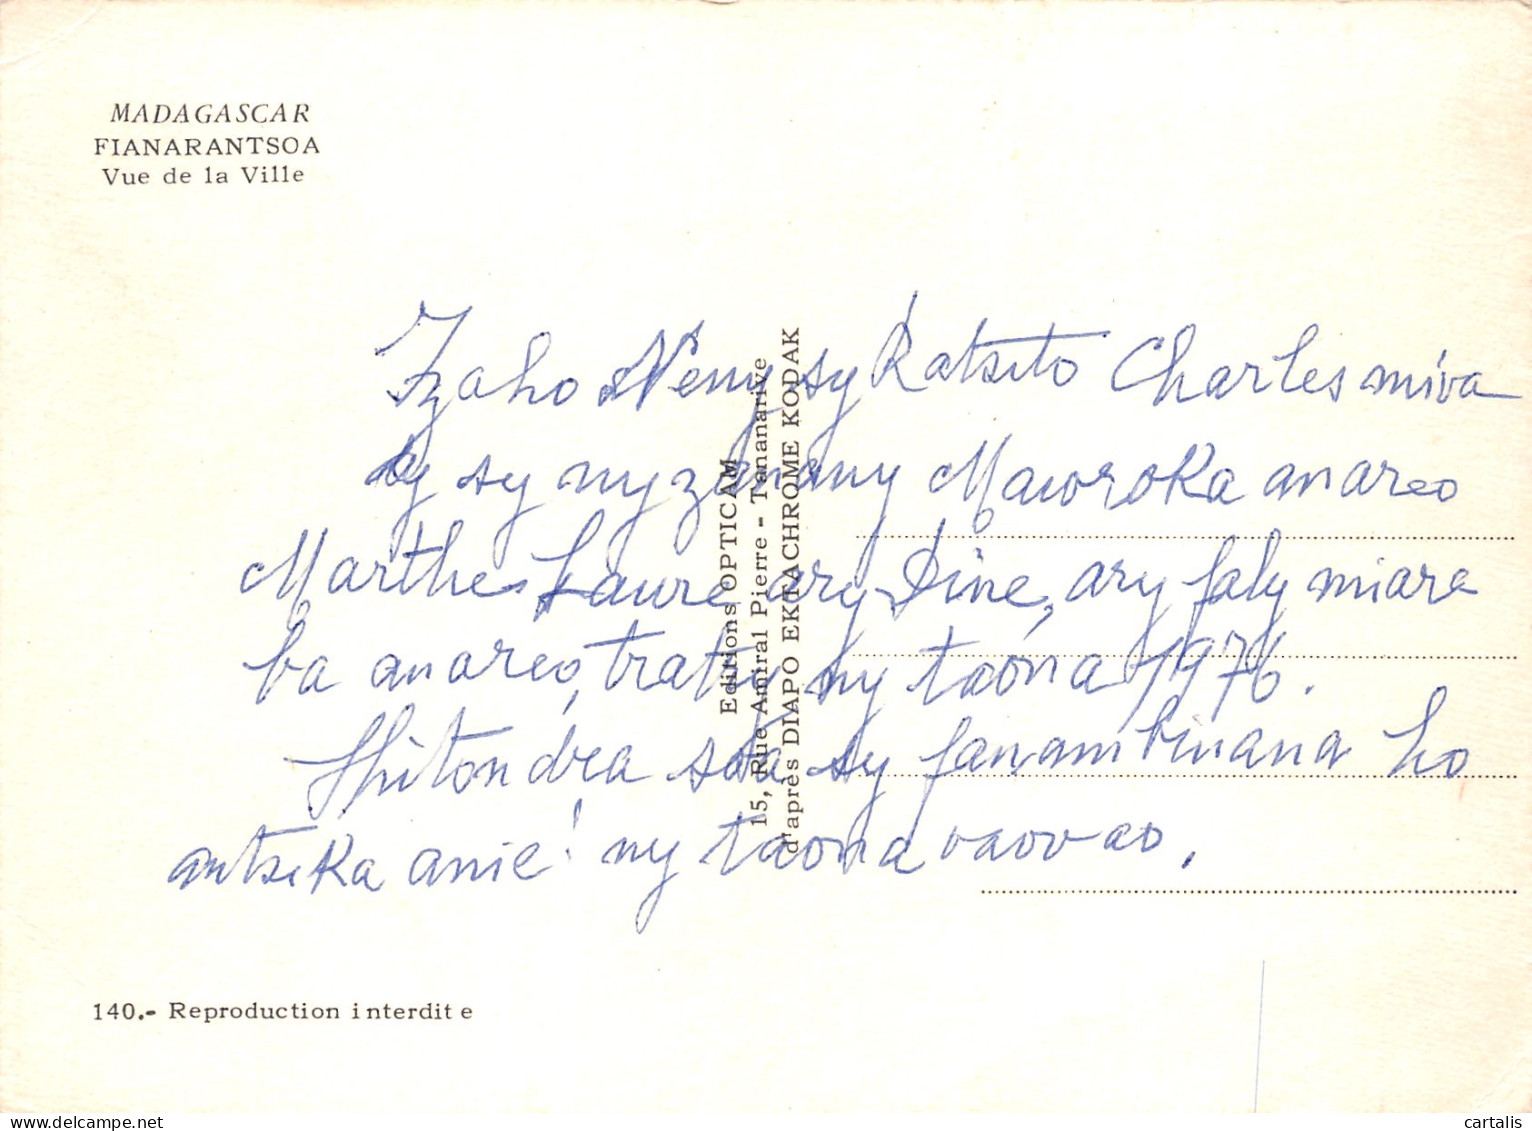 MADAGASCAR
FIANARANTSOA
Vue de la Ville
Izaho Neny sy Ratsito Charles miva
dy sy ny zanany Maworoka anareo
Marthe Laure ary Dine, ary faly miare
ba anareo, tratry ny taona 1976.
Hitondra soa sy fanambinana ho
antsika anie! ny taona vaovao.
Editions OPTICAM
15, Rue Amiral Pierre - Tananarive
d'après DIAPO EKTACHROME KODAK
140.- Reproduction interdite
cartalis